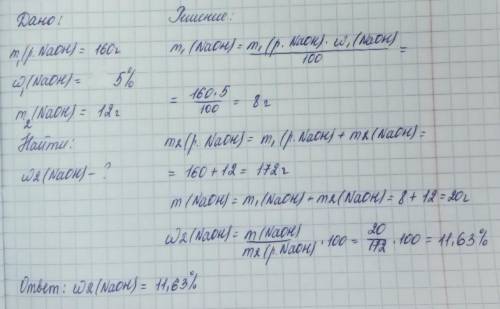 Дано:
m₁(р. NaOH) = 160г
w₁(NaOH) = 5%
m₂(NaOH) = 12г
Найти:
w2(NaOH) - ?
Решение:
m₁(NaOH) = m₁(р. NaOH) · w₁(NaOH) / 100 =
= 160·5 / 100 = 8г
m2(р. NaOH) = m₁(р. NaOH) + m2(NaOH) =
= 160 + 12 = 172г
m(NaOH) = m₁(NaOH) + m2(NaOH) = 8 + 12 = 20г
w2(NaOH) = m(NaOH) / m2(р. NaOH) · 100 = 20 / 172 · 100 = 11,63%
Ответ: w2(NaOH) = 11,63%